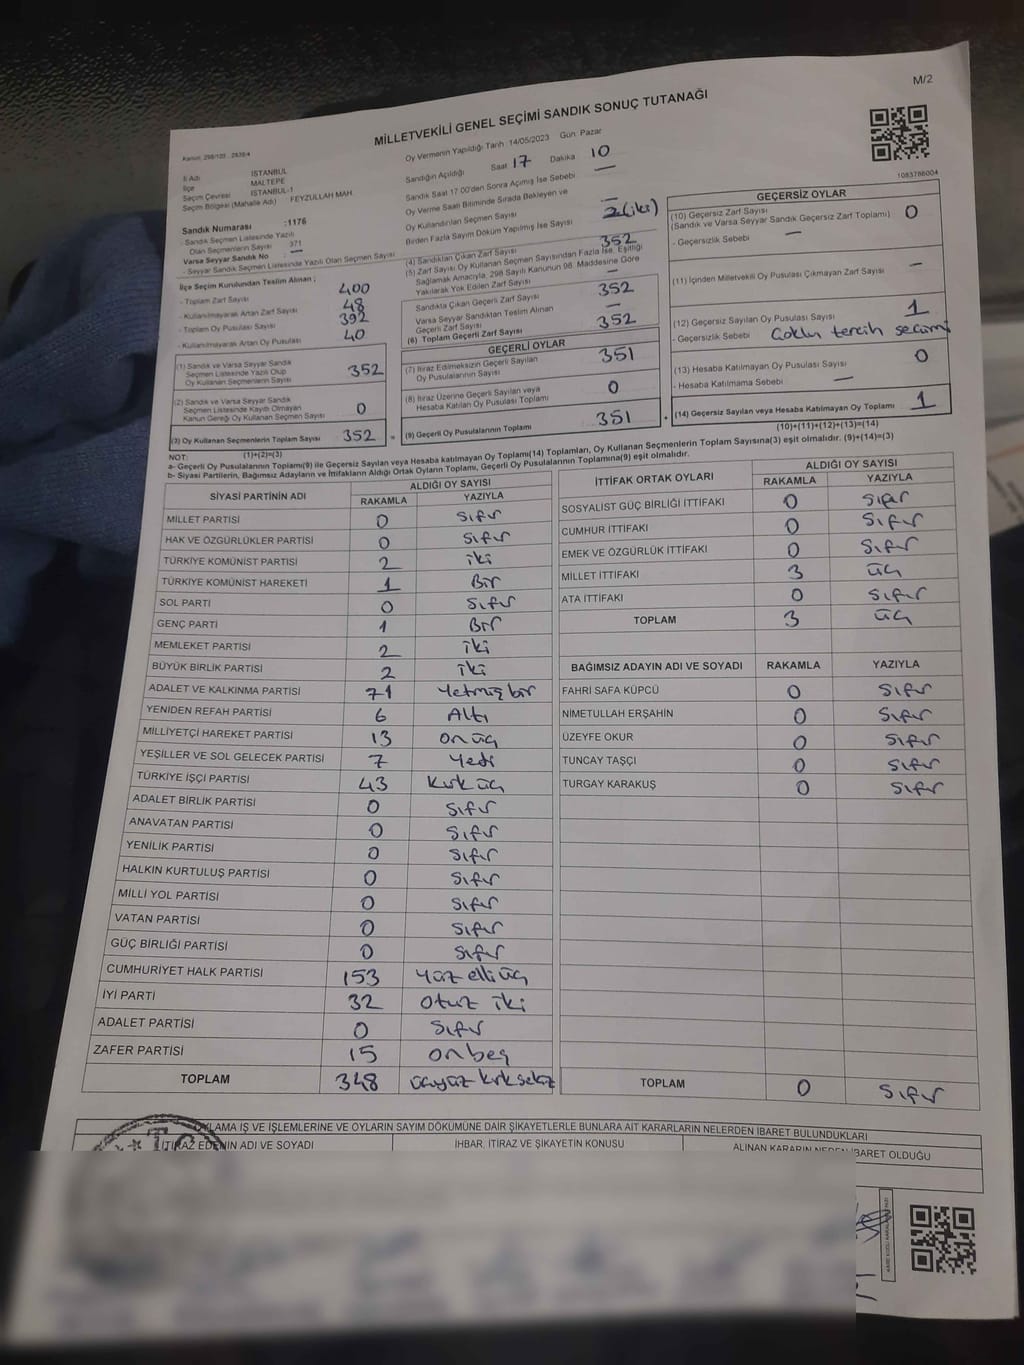 M/2
MİLLETVEKİLİ GENEL SEÇİMİ SANDIK SONUÇ TUTANAĞI
Oy Vermenin Yapıldığı Tarih 14/05/2023 Gün: Pazar
İl Adı İSTANBUL
İlçe MALTEPE
Seçim Çevresi İSTANBUL-1
Seçim Bölgesi (Mahalle Adı) : FEYZULLAH MAH.
Sandık Numarası :1176
- Sandık Seçmen Listesinde Yazılı
Olan Seçmenlerin Sayısı 371
Varsa Seyyar Sandık No —
- Seyyar Sandık Seçmen Listesinde Yazılı Olan Seçmen Sayısı
İlçe Seçim Kurulundan Teslim Alınan ;
- Toplam Zarf Sayısı 400
- Kullanılmayarak Artan Zarf Sayısı 48
- Toplam Oy Pusulası Sayısı 392
- Kullanılmayarak Artan Oy Pusulası 40
(1) Sandık ve Varsa Seyyar Sandık
Seçmen Listesinde Yazılı Olup
Oy Kullanan Seçmenlerin Sayısı 352
(2) Sandık ve Varsa Seyyar Sandık
Seçmen Listesinde Kayıtlı Olmayan
Kanun Gereği Oy Kullanan Seçmen Sayısı 0
(3) Oy Kullanan Seçmenlerin Toplam Sayısı 352
(1)+(2)=(3)
Sandığın Açıldığı Saat 17 Dakika 10
Sandık Saat 17.00'den Sonra Açılmış İse Sebebi —
Oy Verme Saati Bitiminde Sırada Bekleyen ve
Oy Kullandırılan Seçmen Sayısı —
Birden Fazla Sayım Döküm Yapılmış İse Sayısı 2 (iki)
(4) Sandıktan Çıkan Zarf Sayısı 352
(5) Zarf Sayısı Oy Kullanan Seçmen Sayısından Fazla İse, Eşitliği
Sağlamak Amacıyla, 298 Sayılı Kanunun 98. Maddesine Göre
Yakılarak Yok Edilen Zarf Sayısı —
Sandıkta Çıkan Geçerli Zarf Sayısı 352
Varsa Seyyar Sandıktan Teslim Alınan
Geçerli Zarf Sayısı —
(6) Toplam Geçerli Zarf Sayısı 352
GEÇERLİ OYLAR
(7) İtiraz Edilmeksizin Geçerli Sayılan
Oy Pusulalarının Sayısı 351
(8) İtiraz Üzerine Geçerli Sayılan veya
Hesaba Katılan Oy Pusulası Toplamı 0
(9) Geçerli Oy Pusulalarının Toplamı 351
1083786004
GEÇERSİZ OYLAR
(10) Geçersiz Zarf Sayısı
(Sandık ve Varsa Seyyar Sandık Geçersiz Zarf Toplamı) 0
- Geçersizlik Sebebi —
(11) İçinden Milletvekili Oy Pusulası Çıkmayan Zarf Sayısı —
(12) Geçersiz Sayılan Oy Pusulası Sayısı 1
- Geçersizlik Sebebi Çoklu tercih seçimi
(13) Hesaba Katılmayan Oy Pusulası Sayısı 0
- Hesaba Katılmama Sebebi —
(14) Geçersiz Sayılan veya Hesaba Katılmayan Oy Toplamı 1
(10)+(11)+(12)+(13)=(14)
NOT:
a- Geçerli Oy Pusulalarının Toplamı(9) ile Geçersiz Sayılan veya Hesaba Katılmayan Oy Toplamı(14) Toplamları, Oy Kullanan Seçmenlerin Toplam Sayısına(3) eşit olmalıdır. (9)+(14)=(3)
b- Siyasi Partilerin, Bağımsız Adayların ve İttifakların Aldığı Ortak Oyların Toplamı, Geçerli Oy Pusulalarının Toplamına(9) eşit olmalıdır.
SİYASİ PARTİNİN ADI ALDIĞI OY SAYISI
RAKAMLA YAZIYLA
MİLLET PARTİSİ 0 Sıfır
HAK VE ÖZGÜRLÜKLER PARTİSİ 0 Sıfır
TÜRKİYE KOMÜNİST PARTİSİ 2 iki
TÜRKİYE KOMÜNİST HAREKETİ 1 Bir
SOL PARTİ 0 Sıfır
GENÇ PARTİ 1 Bir
MEMLEKET PARTİSİ 2 iki
BÜYÜK BİRLİK PARTİSİ 2 iki
ADALET VE KALKINMA PARTİSİ 71 Yetmiş bir
YENİDEN REFAH PARTİSİ 6 Altı
MİLLİYETÇİ HAREKET PARTİSİ 13 on üç
YEŞİLLER VE SOL GELECEK PARTİSİ 7 Yedi
TÜRKİYE İŞÇİ PARTİSİ 43 kırk üç
ADALET BİRLİK PARTİSİ 0 Sıfır
ANAVATAN PARTİSİ 0 Sıfır
YENİLİK PARTİSİ 0 Sıfır
HALKIN KURTULUŞ PARTİSİ 0 Sıfır
MİLLİ YOL PARTİSİ 0 Sıfır
VATAN PARTİSİ 0 Sıfır
GÜÇ BİRLİĞİ PARTİSİ 0 Sıfır
CUMHURİYET HALK PARTİSİ 153 Yüz elli üç
İYİ PARTİ 32 otuz iki
ADALET PARTİSİ 0 Sıfır
ZAFER PARTİSİ 15 on beş
TOPLAM 348 üçyüz kırk sekiz
İTTİFAK ORTAK OYLARI ALDIĞI OY SAYISI
RAKAMLA YAZIYLA
SOSYALİST GÜÇ BİRLİĞİ İTTİFAKI 0 Sıfır
CUMHUR İTTİFAKI 0 Sıfır
EMEK VE ÖZGÜRLÜK İTTİFAKI 0 Sıfır
MİLLET İTTİFAKI 3 üç
ATA İTTİFAKI 0 Sıfır
TOPLAM 3 üç
BAĞIMSIZ ADAYIN ADI VE SOYADI RAKAMLA YAZIYLA
FAHRİ SAFA KÜPCÜ 0 Sıfır
NİMETULLAH ERŞAHİN 0 Sıfır
ÜZEYFE OKUR 0 Sıfır
TUNCAY TAŞÇI 0 Sıfır
TURGAY KARAKUŞ 0 Sıfır
TOPLAM 0 Sıfır
OYLAMA İŞ VE İŞLEMLERİNE VE OYLARIN SAYIM DÖKÜMÜNE DAİR ŞİKAYETLERLE BUNLARA AİT KARARLARIN NELERDEN İBARET BULUNDUKLARI
İTİRAZ EDENİN ADI VE SOYADI İHBAR, İTİRAZ VE ŞİKAYETİN KONUSU ALINAN KARARIN NEDEN İBARET OLDUĞU
T.C.